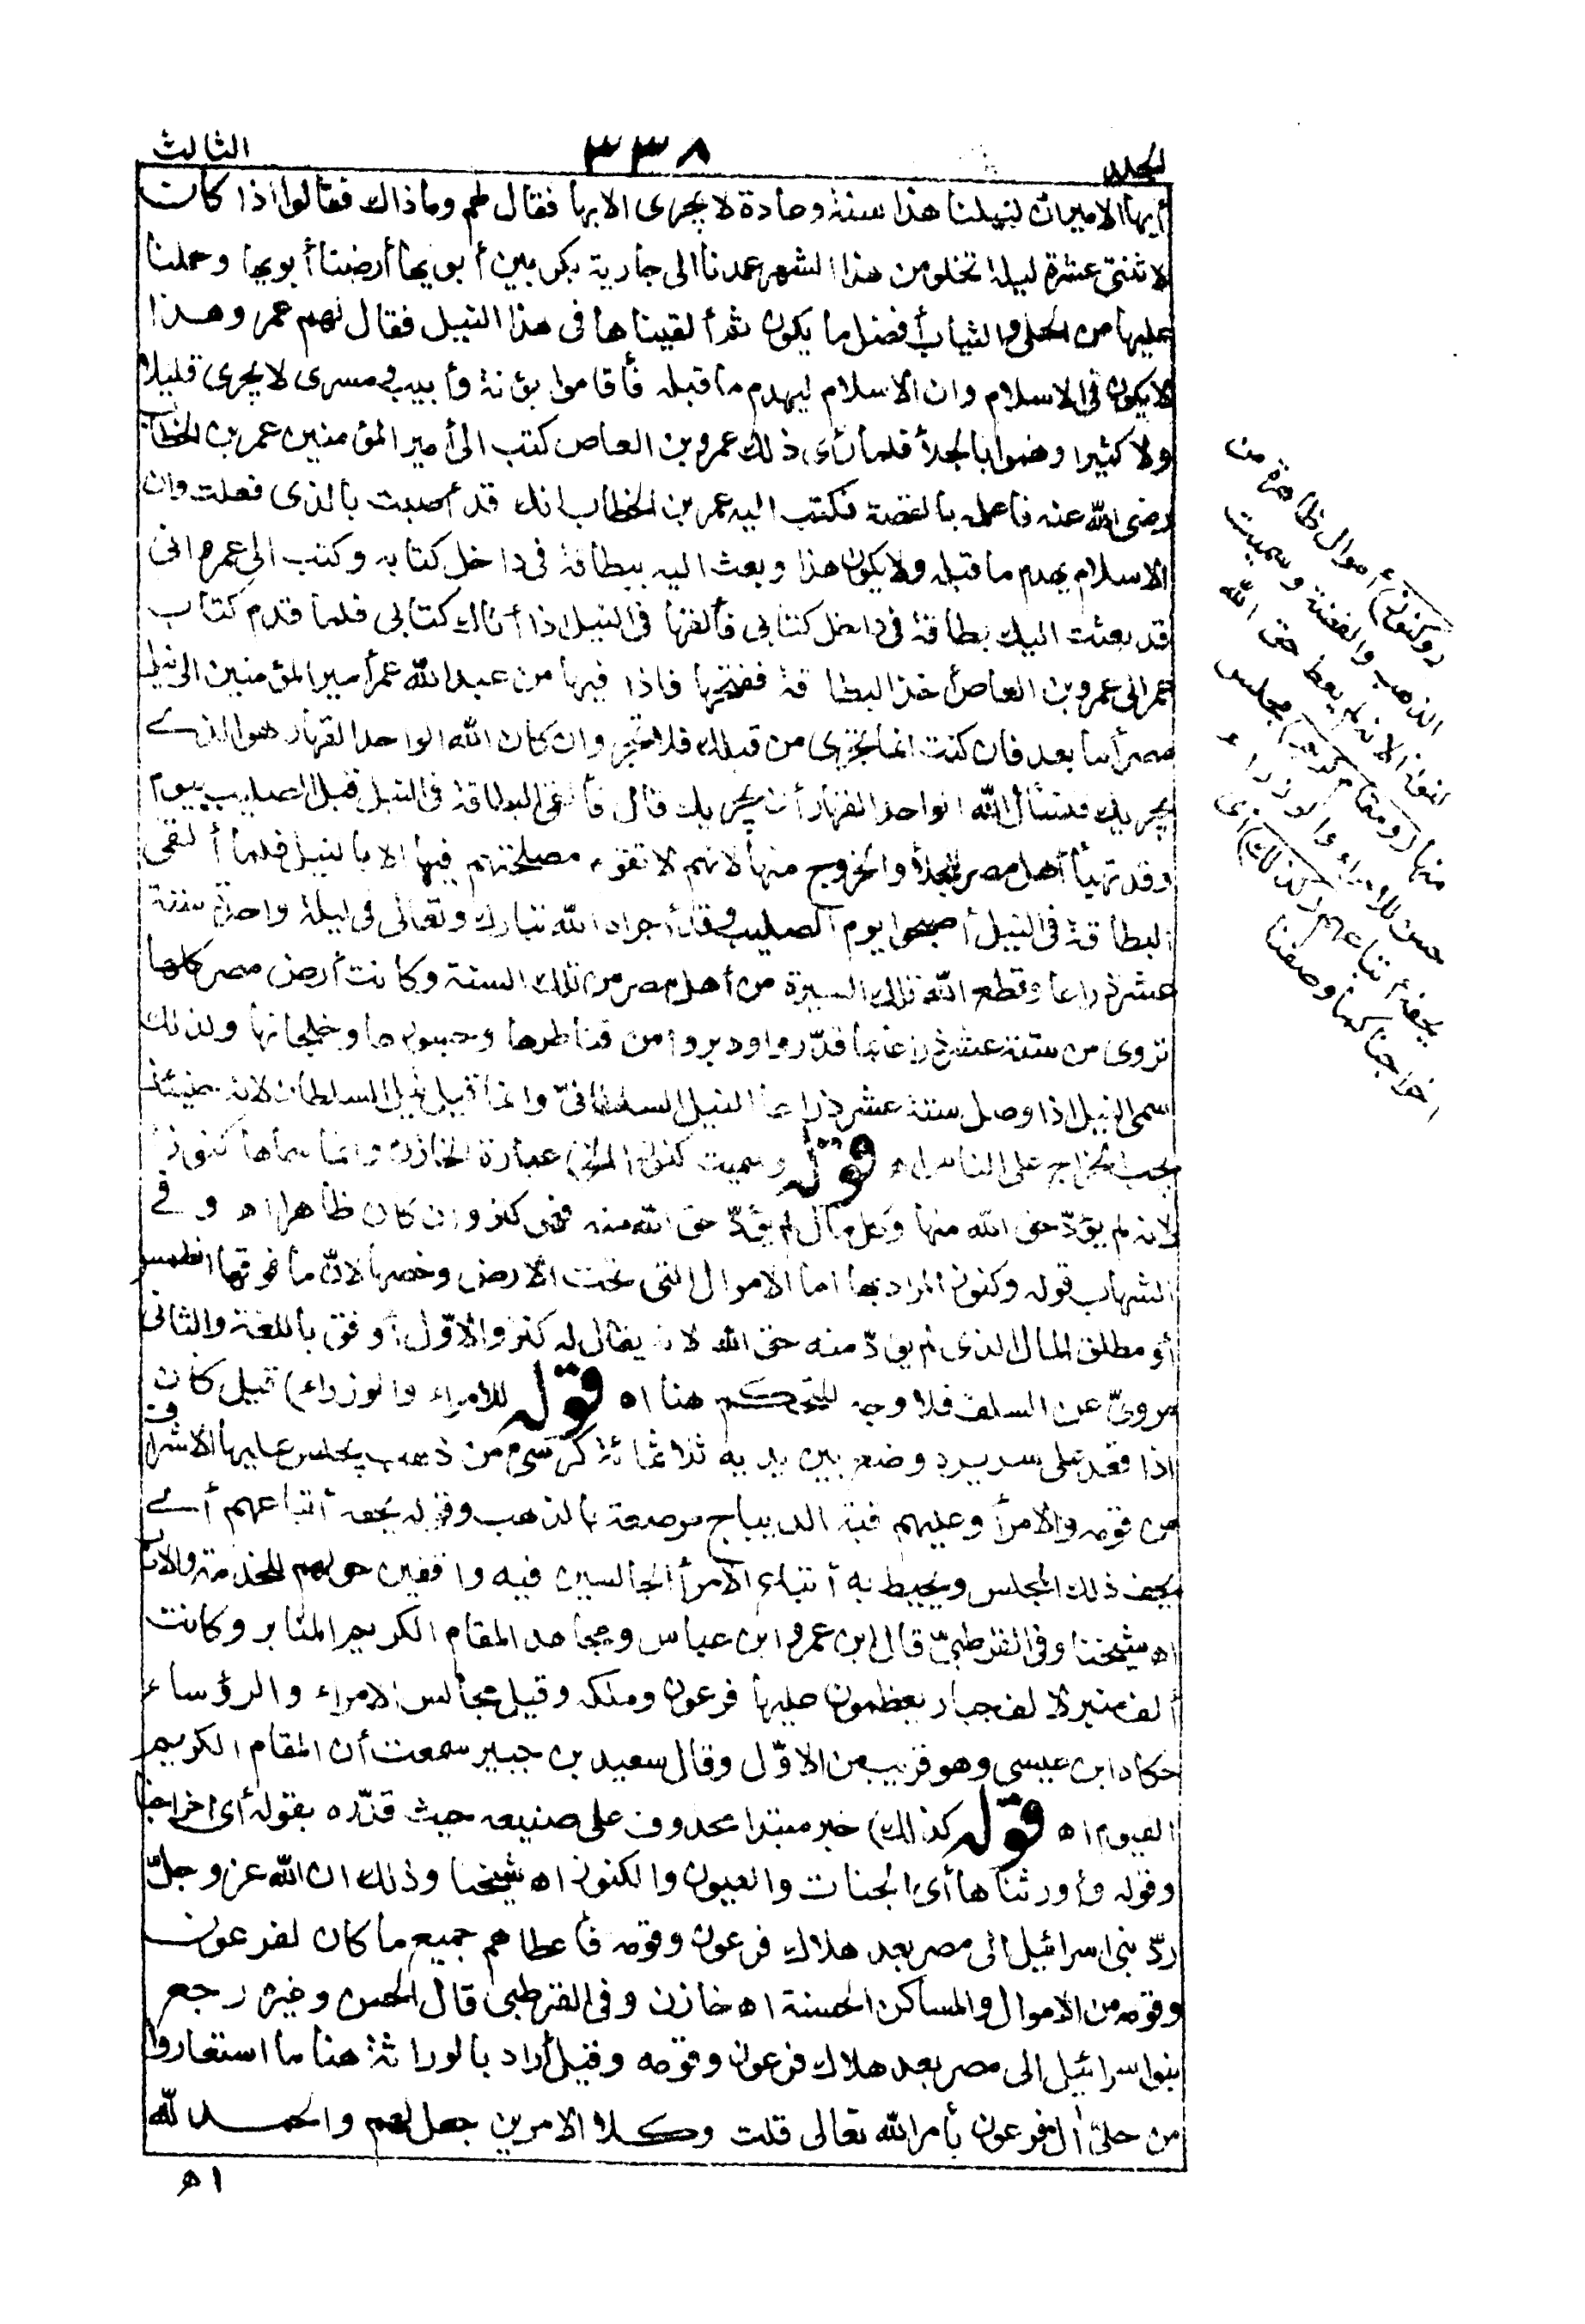 المجلد
٣٣٨
الثالث
أيها الامير ان لنيلنا هذا سنة وعادة لا يجرى الا بها فقال لهم وما ذاك فقالوا اذا كانت
لاثنتى عشرة ليلة تخلو من هذا الشهر عمدنا الى جارية بكر بين أبويها أرضينا أبويها وحملنا
عليها من الحلى والثياب أفضل ما يكون ثم ألقيناها فى هذا النيل فقال لهم عمر وهذا
لا يكون فى الاسلام وان الاسلام ليهدم ما قبله فأقاموا بؤنة وأبيب ومسرى لا يجرى قليلا
ولا كثيرا وهموا بالجلأ فلما رأى ذلك عمرو بن العاص كتب الى أمير المؤمنين عمر بن الخطاب
رضى الله عنه فأعلمه بالقصة فكتب اليه عمر بن الخطاب انك قد أصبت بالذى فعلت وان
الاسلام يهدم ما قبله ولا يكون هذا وبعث اليه ببطاقة فى داخل كتابه وكتب الى عمرو انى
قد بعثت اليك بطاقة فى داخل كتابى فألقها فى النيل اذا أتاك كتابى فلما قدم كتاب
عمر الى عمرو بن العاص أخذ البطاقة ففتحها فاذا فيها من عبد الله عمر أمير المؤمنين الى نيل
مصر أما بعد فان كنت انما تجرى من قبلك فلا تجر وان كان الله الواحد القهار هو الذى
يجريك فنسأل الله الواحد القهار أن يجريك قال فألقى البطاقة فى النيل قبل الصليب بيوم
وقد تهيأ أهل مصر للجلأ والخروج منها لانهم لا تقوم مصلحتهم فيها الا بالنيل فلما ألقى
البطاقة فى النيل أصبحوا يوم الصليب وقد أجراه الله تبارك وتعالى فى ليلة واحدة ستة
عشر ذراعا وقطع الله تلك السيرة من أهل مصر من تلك السنة وكانت أرض مصر كلها
تروى من ستة عشر ذراعا بما قدّروا ودبروا من قناطرها وجسورها وخلجانها ولذلك
سمى النيل اذا وصل ستة عشر ذراعا النيل السلطانىّ وانما قيل نيل السلطان لانه حينئذ
يجب الخراج على الناس اه قوله وسميت كنوزا الخ) عبارة الخازن وانما سماها كنوزا
لانه لم يؤدّ حق الله منها وكل مال لم يؤدّ حق الله منه فهو كنز وان كان ظاهرا اه وفى
الشهاب قوله وكنوز المراد بها اما الاموال التى تحت الارض وخصها لانّ ما فوقها انطمس
أو مطلق المال الذى لم يؤدّ منه حق الله لانه يقال له كنز والاوّل أوفق باللغة والثانى
مروىّ عن السلف فلا وجه للتحكم هنا اه قوله للامراء والوزراء) قيل كان
اذا قعد على سريره وضع بين يديه ثلاثمائة كرسى من ذهب يجلس عليها الاشراف
من قومه والامرأ وعليهم قبة الديباج مرصعة بالذهب وقوله يحفه أتباعهم أى
يحف ذلك المجلس ويحيط به أتباع الامرأ الجالسين فيه واقفين حولهم للخدمة والادب
اه شيخنا وفى القرطبىّ قال ابن عمر وابن عباس ومجاهد المقام الكريم المنابر وكانت
ألف منبر لالف جبار يعظمون عليها فرعون وملكه وقيل مجالس الامراء والرؤساء
حكاه ابن عيسى وهو قريب من الاوّل وقال سعيد بن جبير سمعت أن المقام الكريم
الفيوم اه قوله كذلك) خبر مبتدا محذوف على صنيعه حيث قدّره بقوله أى اخراجنا
وقوله وأورثناها أى الجنات والعيون والكنوز اه شيخنا وذلك ان الله عز وجلّ
ردّ بنى اسرائيل الى مصر بعد هلاك فرعون وقومه فأعطاهم جميع ما كان لفرعون
وقومه من الاموال والمساكن الحسنة اه خازن وفى القرطبى قال الحسن وغيره رجع
بنو اسرائيل الى مصر بعد هلاك فرعون وقومه وقيل أراد بالوراثة هنا ما استعاروا
من حلىّ آل فرعون بأمر الله تعالى قلت وكلا الامرين حصل لهم والحمد لله
اه
(وكنوز) أموال ظاهرة من
الذهب والفضة وسميت
كنوزا لانه لم يعط حق الله
منها (ومقام كريم) مجلس
حسن للامراء والوزراء
يحفه أتباعهم (كذلك) أى
اخراجنا كما وصفنا